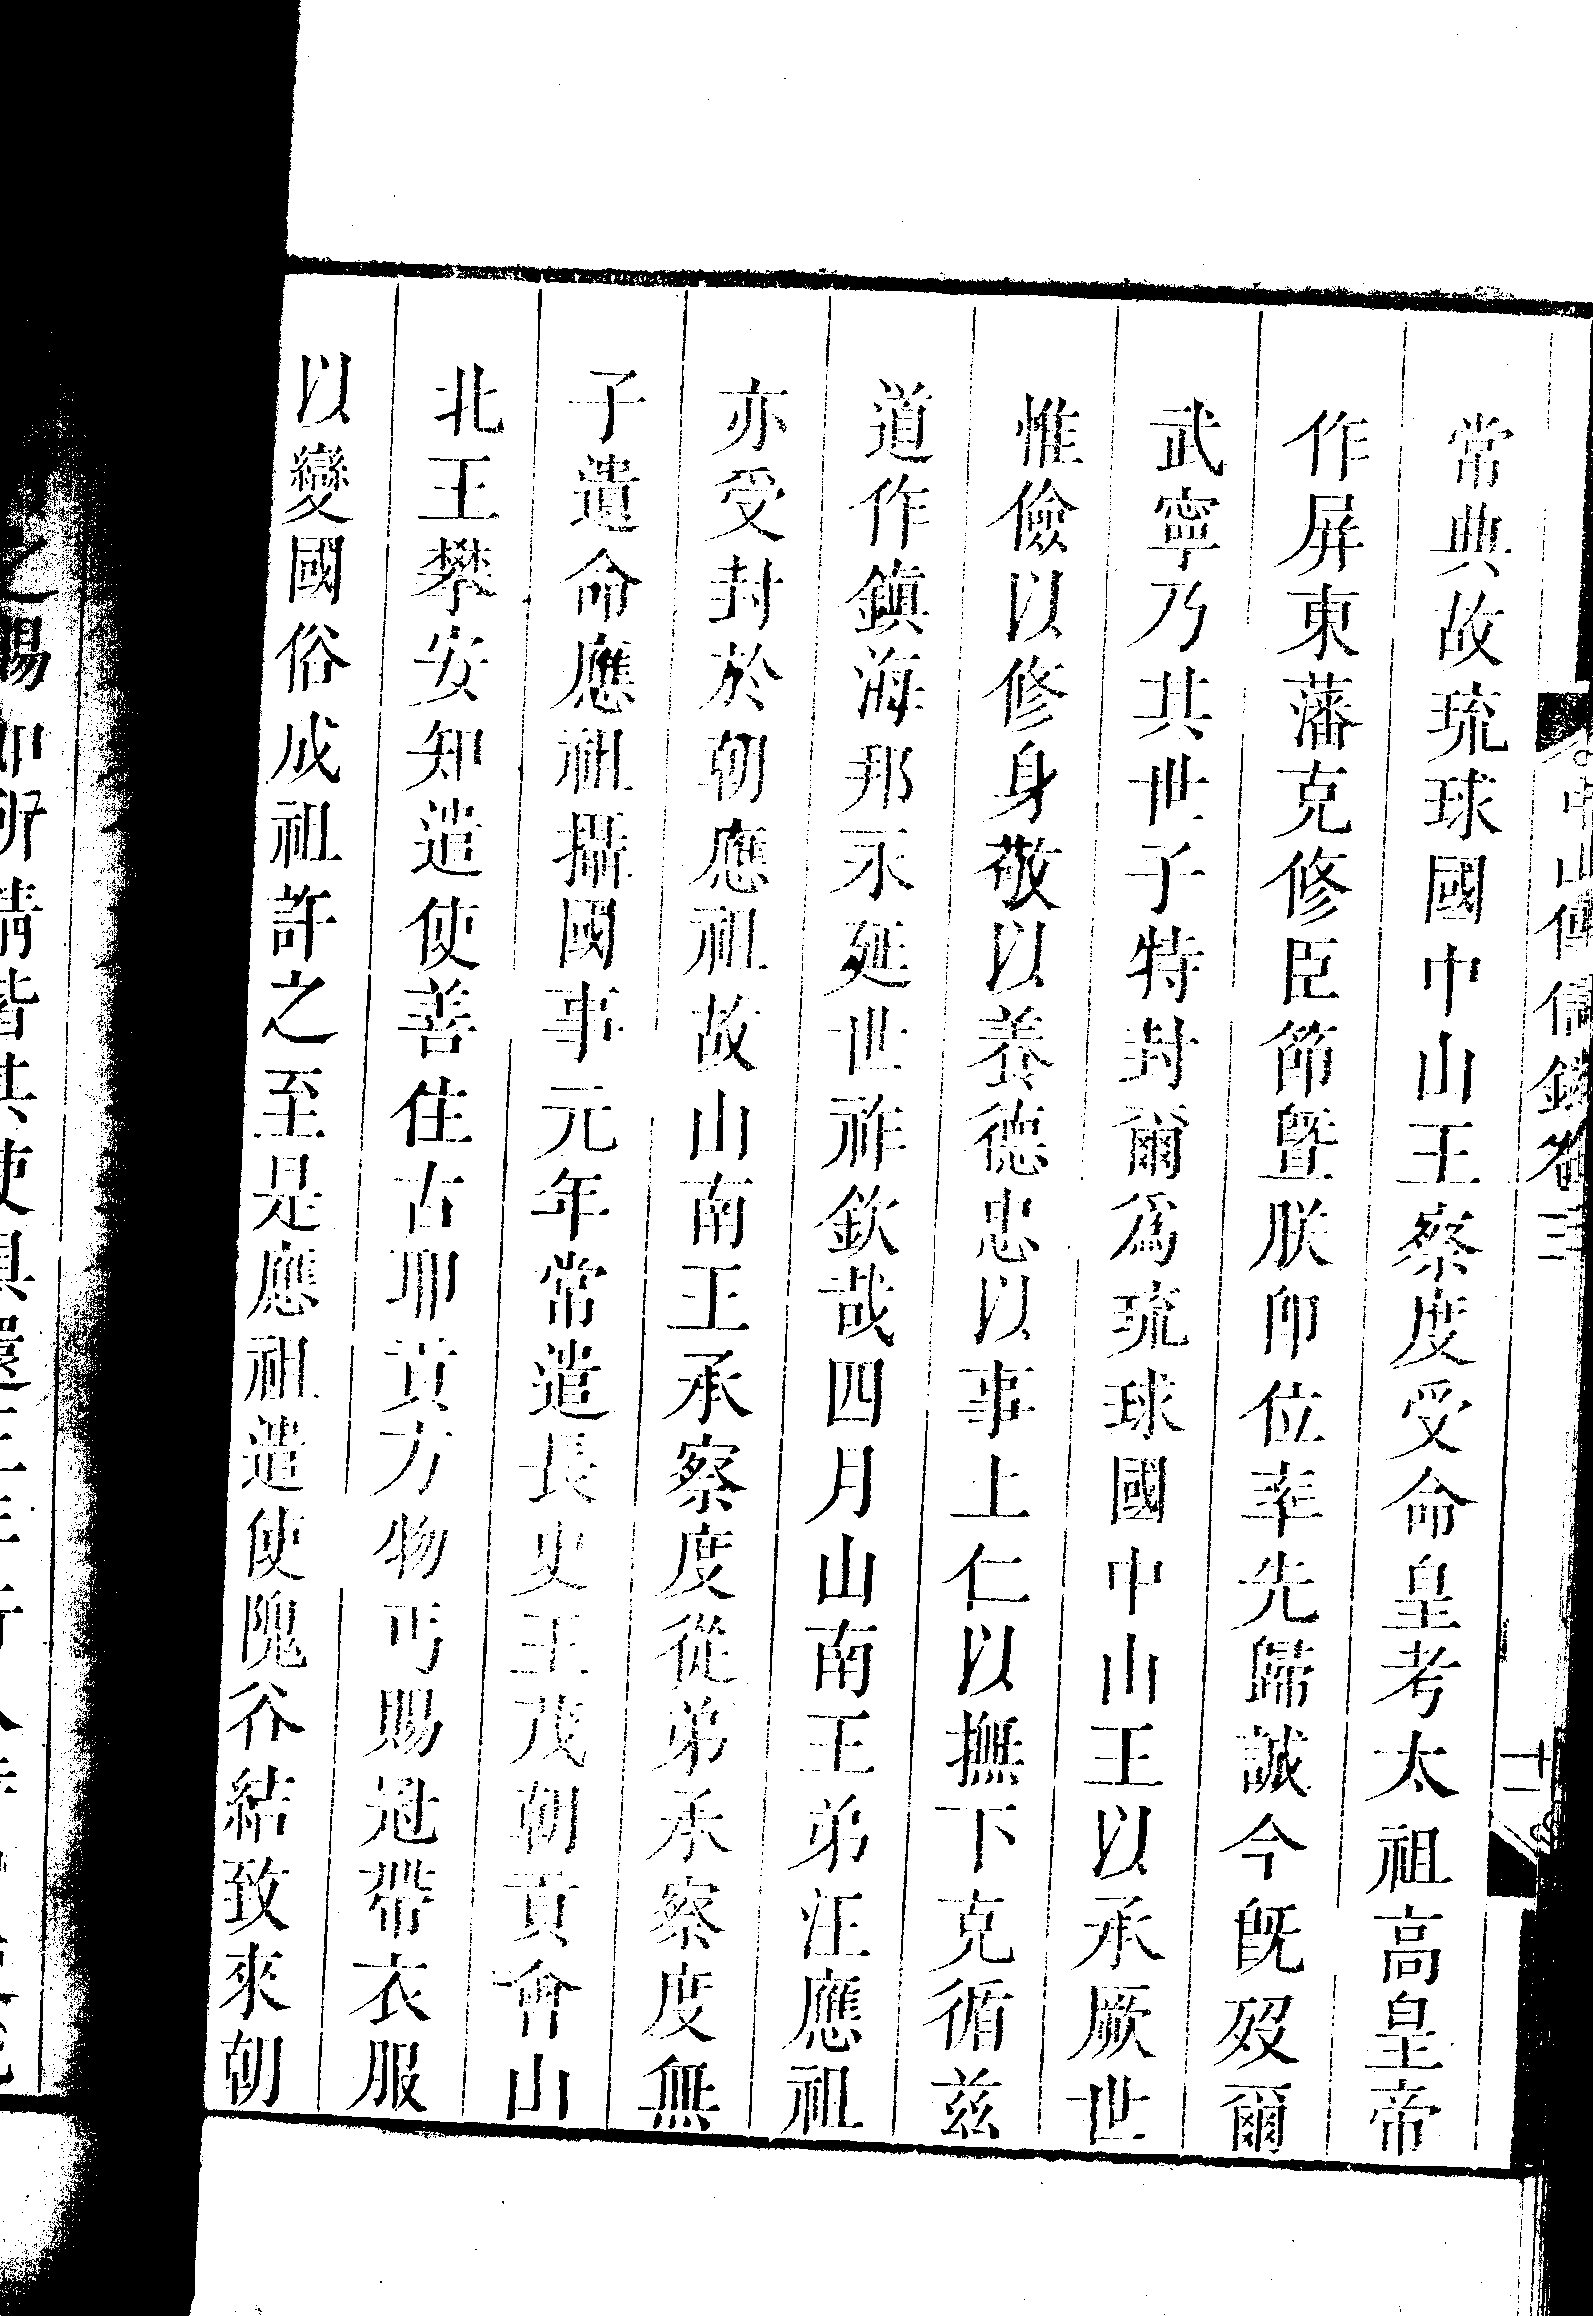 中山傳信錄卷三
十二
常典故琉球國中山王察度受命皇考太祖高皇帝
作屏東藩克修臣節曁朕卽位率先歸誠今旣歿爾
武寧乃其世子特封爾爲琉球國中山王以承厥世
惟儉以修身敬以養德忠以事上仁以撫下克循兹
道作鎮海邦永延世祚欽哉四月山南王弟汪應祖
亦受封於朝應祖故山南王承察度從弟承察度無
子遺命應祖攝國事元年常遣長史王茂朝貢會山
北王攀安知遣使善住古耶貢方物丐賜冠帶衣服
以變國俗成祖許之至是應祖遣使隗谷結致來朝